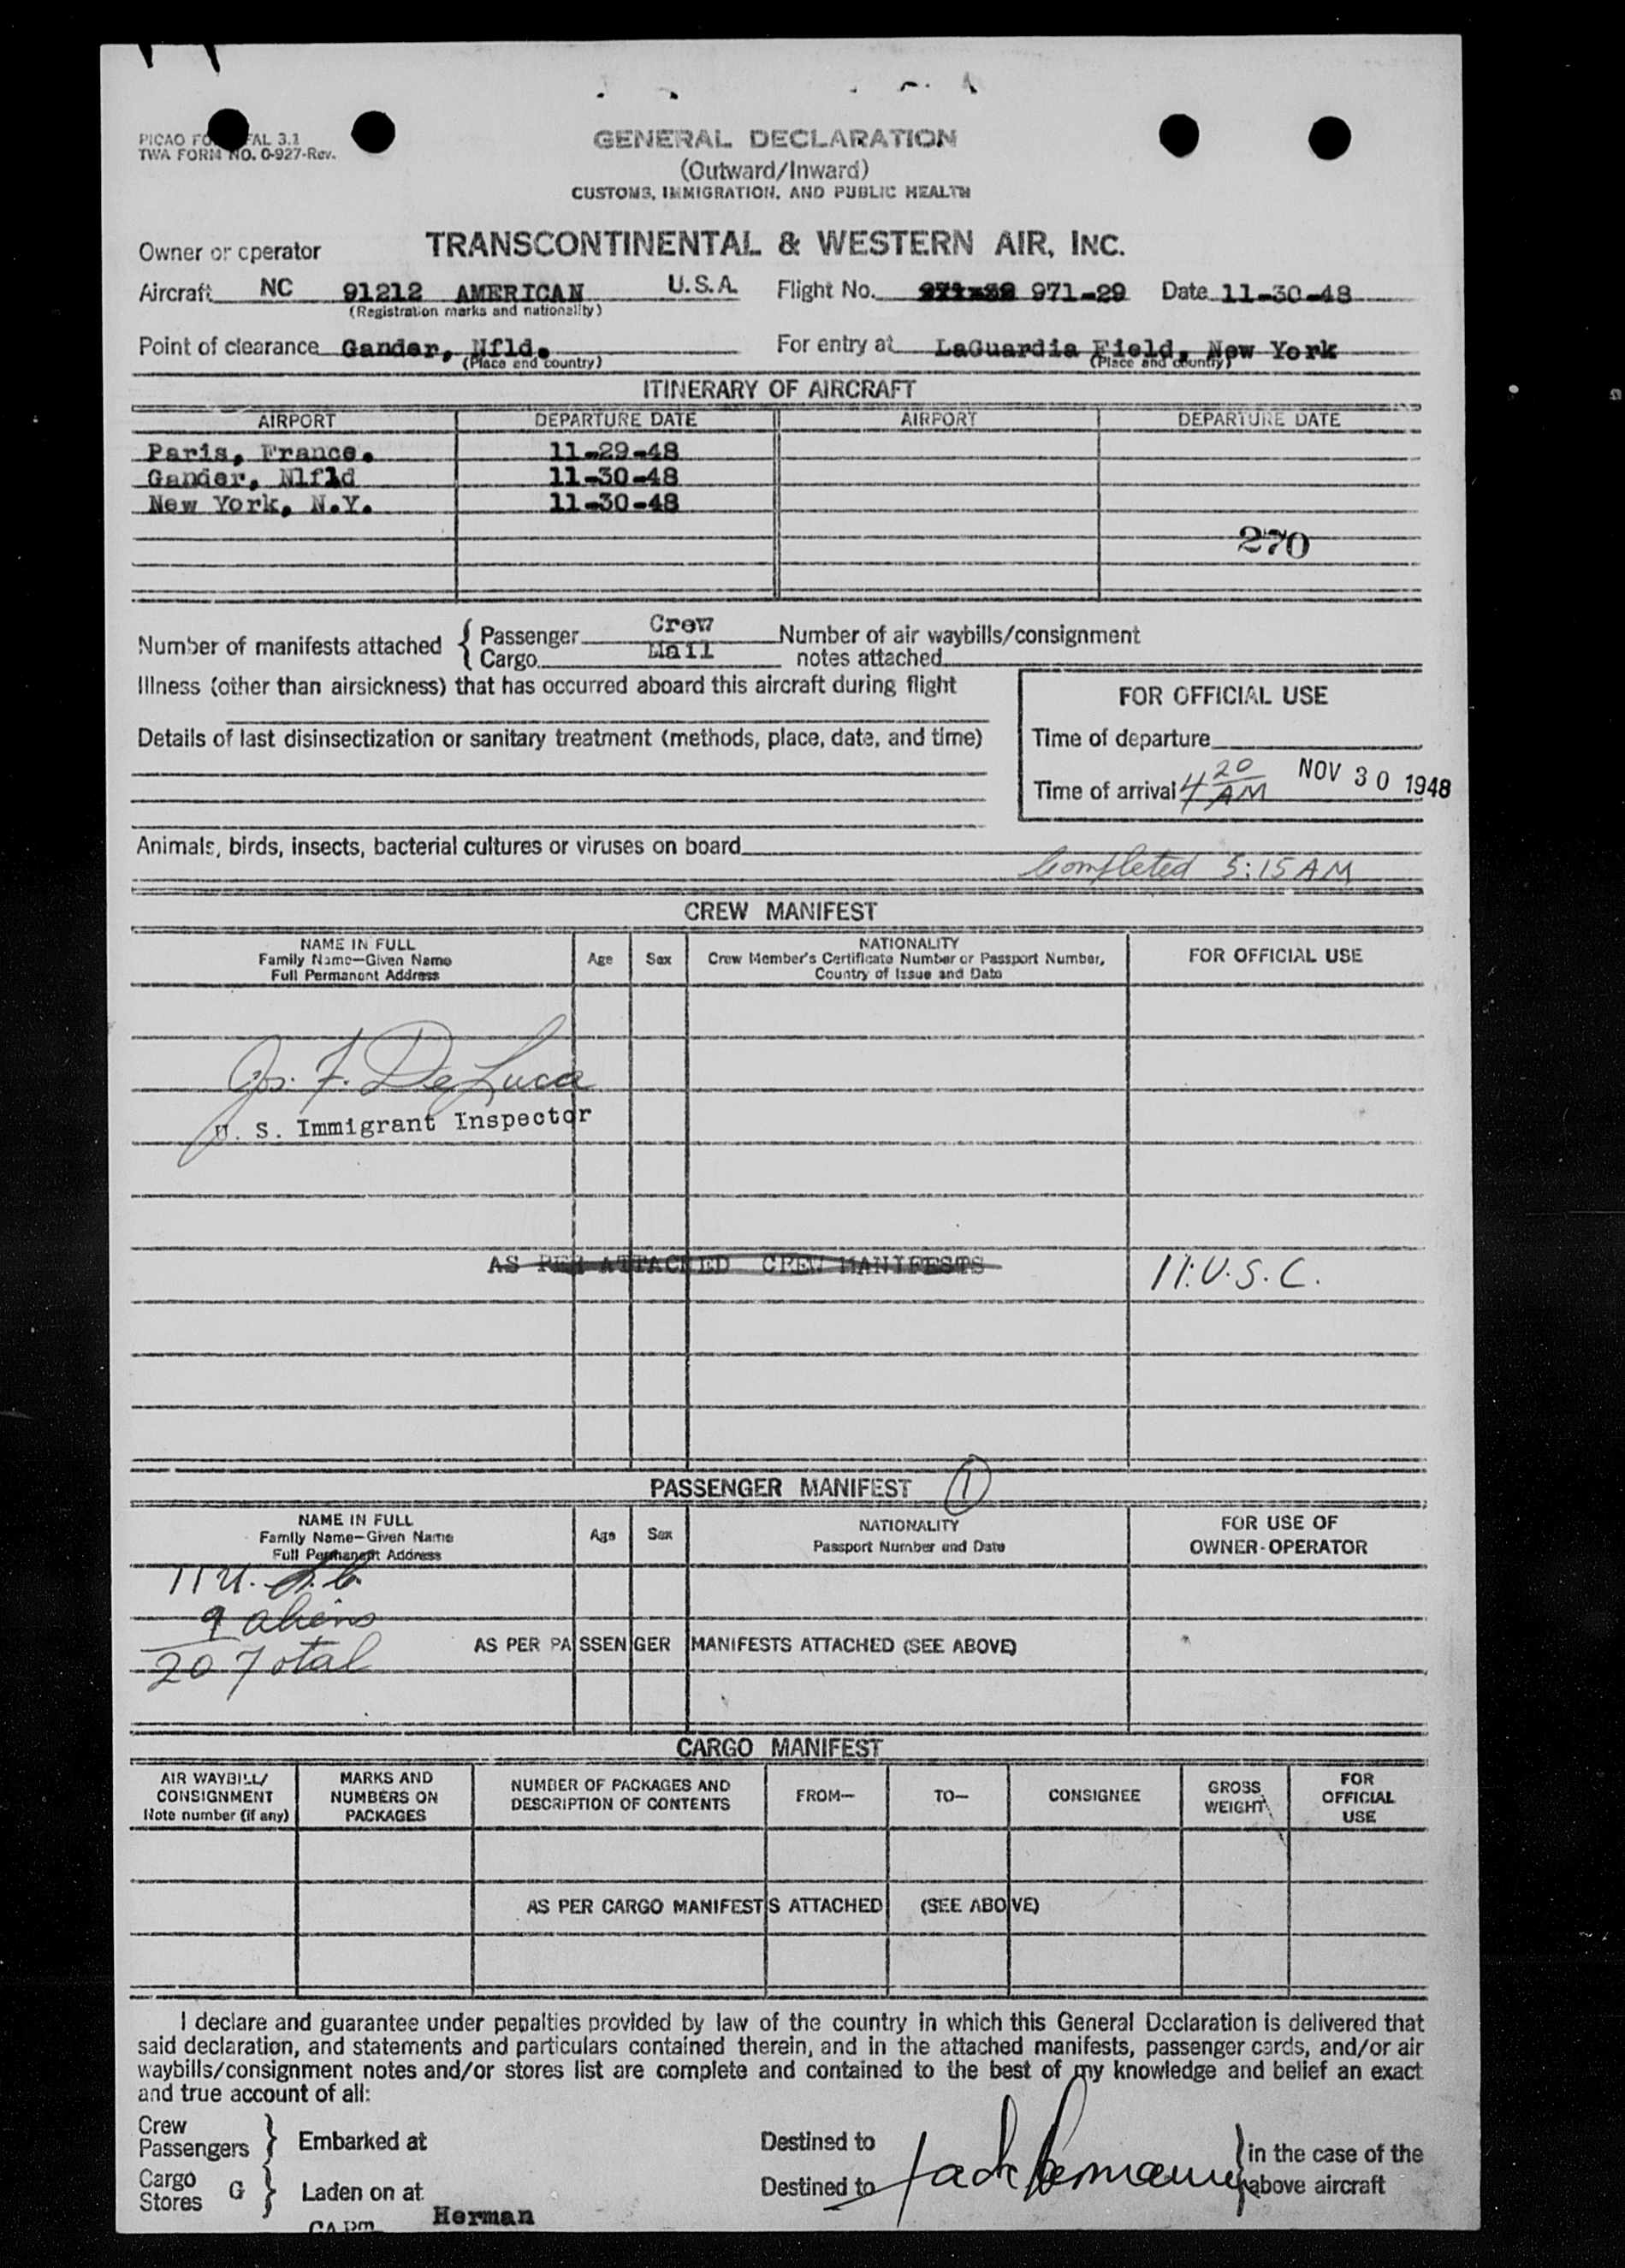 PICAO FO FAL 3.1
TWA FORM NO. 0-927-Rev.
GENERAL DECLARATION
(Outward/Inward)
CUSTOMS, IMMIGRATION, AND PUBLIC HEALTH
Owner or operator TRANSCONTINENTAL & WESTERN AIR, INC.
Aircraft NC 91212 AMERICAN U.S.A. Flight No. 971-29 Date 11-30-48
(Registration marks and nationality)
Point of clearance Gander, Nfld. For entry at LaGuardia Field, New York
(Place and country) (Place and country)
ITINERARY OF AIRCRAFT
AIRPORT DEPARTURE DATE AIRPORT DEPARTURE DATE
Paris, France. 11-29-48
Gander, Nlfld 11-30-48
New York, N.Y. 11-30-48
270
Number of manifests attached { Passenger Crew Number of air waybills/consignment
Cargo Mail notes attached
Illness (other than airsickness) that has occurred aboard this aircraft during flight
FOR OFFICIAL USE
Details of last disinsectization or sanitary treatment (methods, place, date, and time)
Time of departure
Time of arrival 4 20 AM NOV 30 1948
Animals, birds, insects, bacterial cultures or viruses on board
Completed 5:15 AM
CREW MANIFEST
NAME IN FULL
Family Name—Given Name
Full Permanent Address
Age Sex
NATIONALITY
Crew Member's Certificate Number or Passport Number,
Country of Issue and Date
FOR OFFICIAL USE
Jos. F. DeLuca
U. S. Immigrant Inspector
AS PER ATTACHED CREW MANIFESTS 11. U.S.C.
PASSENGER MANIFEST 1
NAME IN FULL
Family Name—Given Name
Full Permanent Address
Age Sex
NATIONALITY
Passport Number and Date
FOR USE OF
OWNER-OPERATOR
11 U.
9 aliens
20 Total AS PER PASSENGER MANIFESTS ATTACHED (SEE ABOVE)
CARGO MANIFEST
AIR WAYBILL/
CONSIGNMENT
Note number (if any)
MARKS AND
NUMBERS ON
PACKAGES
NUMBER OF PACKAGES AND
DESCRIPTION OF CONTENTS
FROM— TO— CONSIGNEE
GROSS
WEIGHT
FOR
OFFICIAL
USE
AS PER CARGO MANIFESTS ATTACHED (SEE ABOVE)
I declare and guarantee under penalties provided by law of the country in which this General Declaration is delivered that
said declaration, and statements and particulars contained therein, and in the attached manifests, passenger cards, and/or air
waybills/consignment notes and/or stores list are complete and contained to the best of my knowledge and belief an exact
and true account of all:
Crew
Passengers } Embarked at Destined to
Cargo
Stores G } Laden on at Destined to
Jack Hermann
} in the case of the
above aircraft
CAPT. Herman